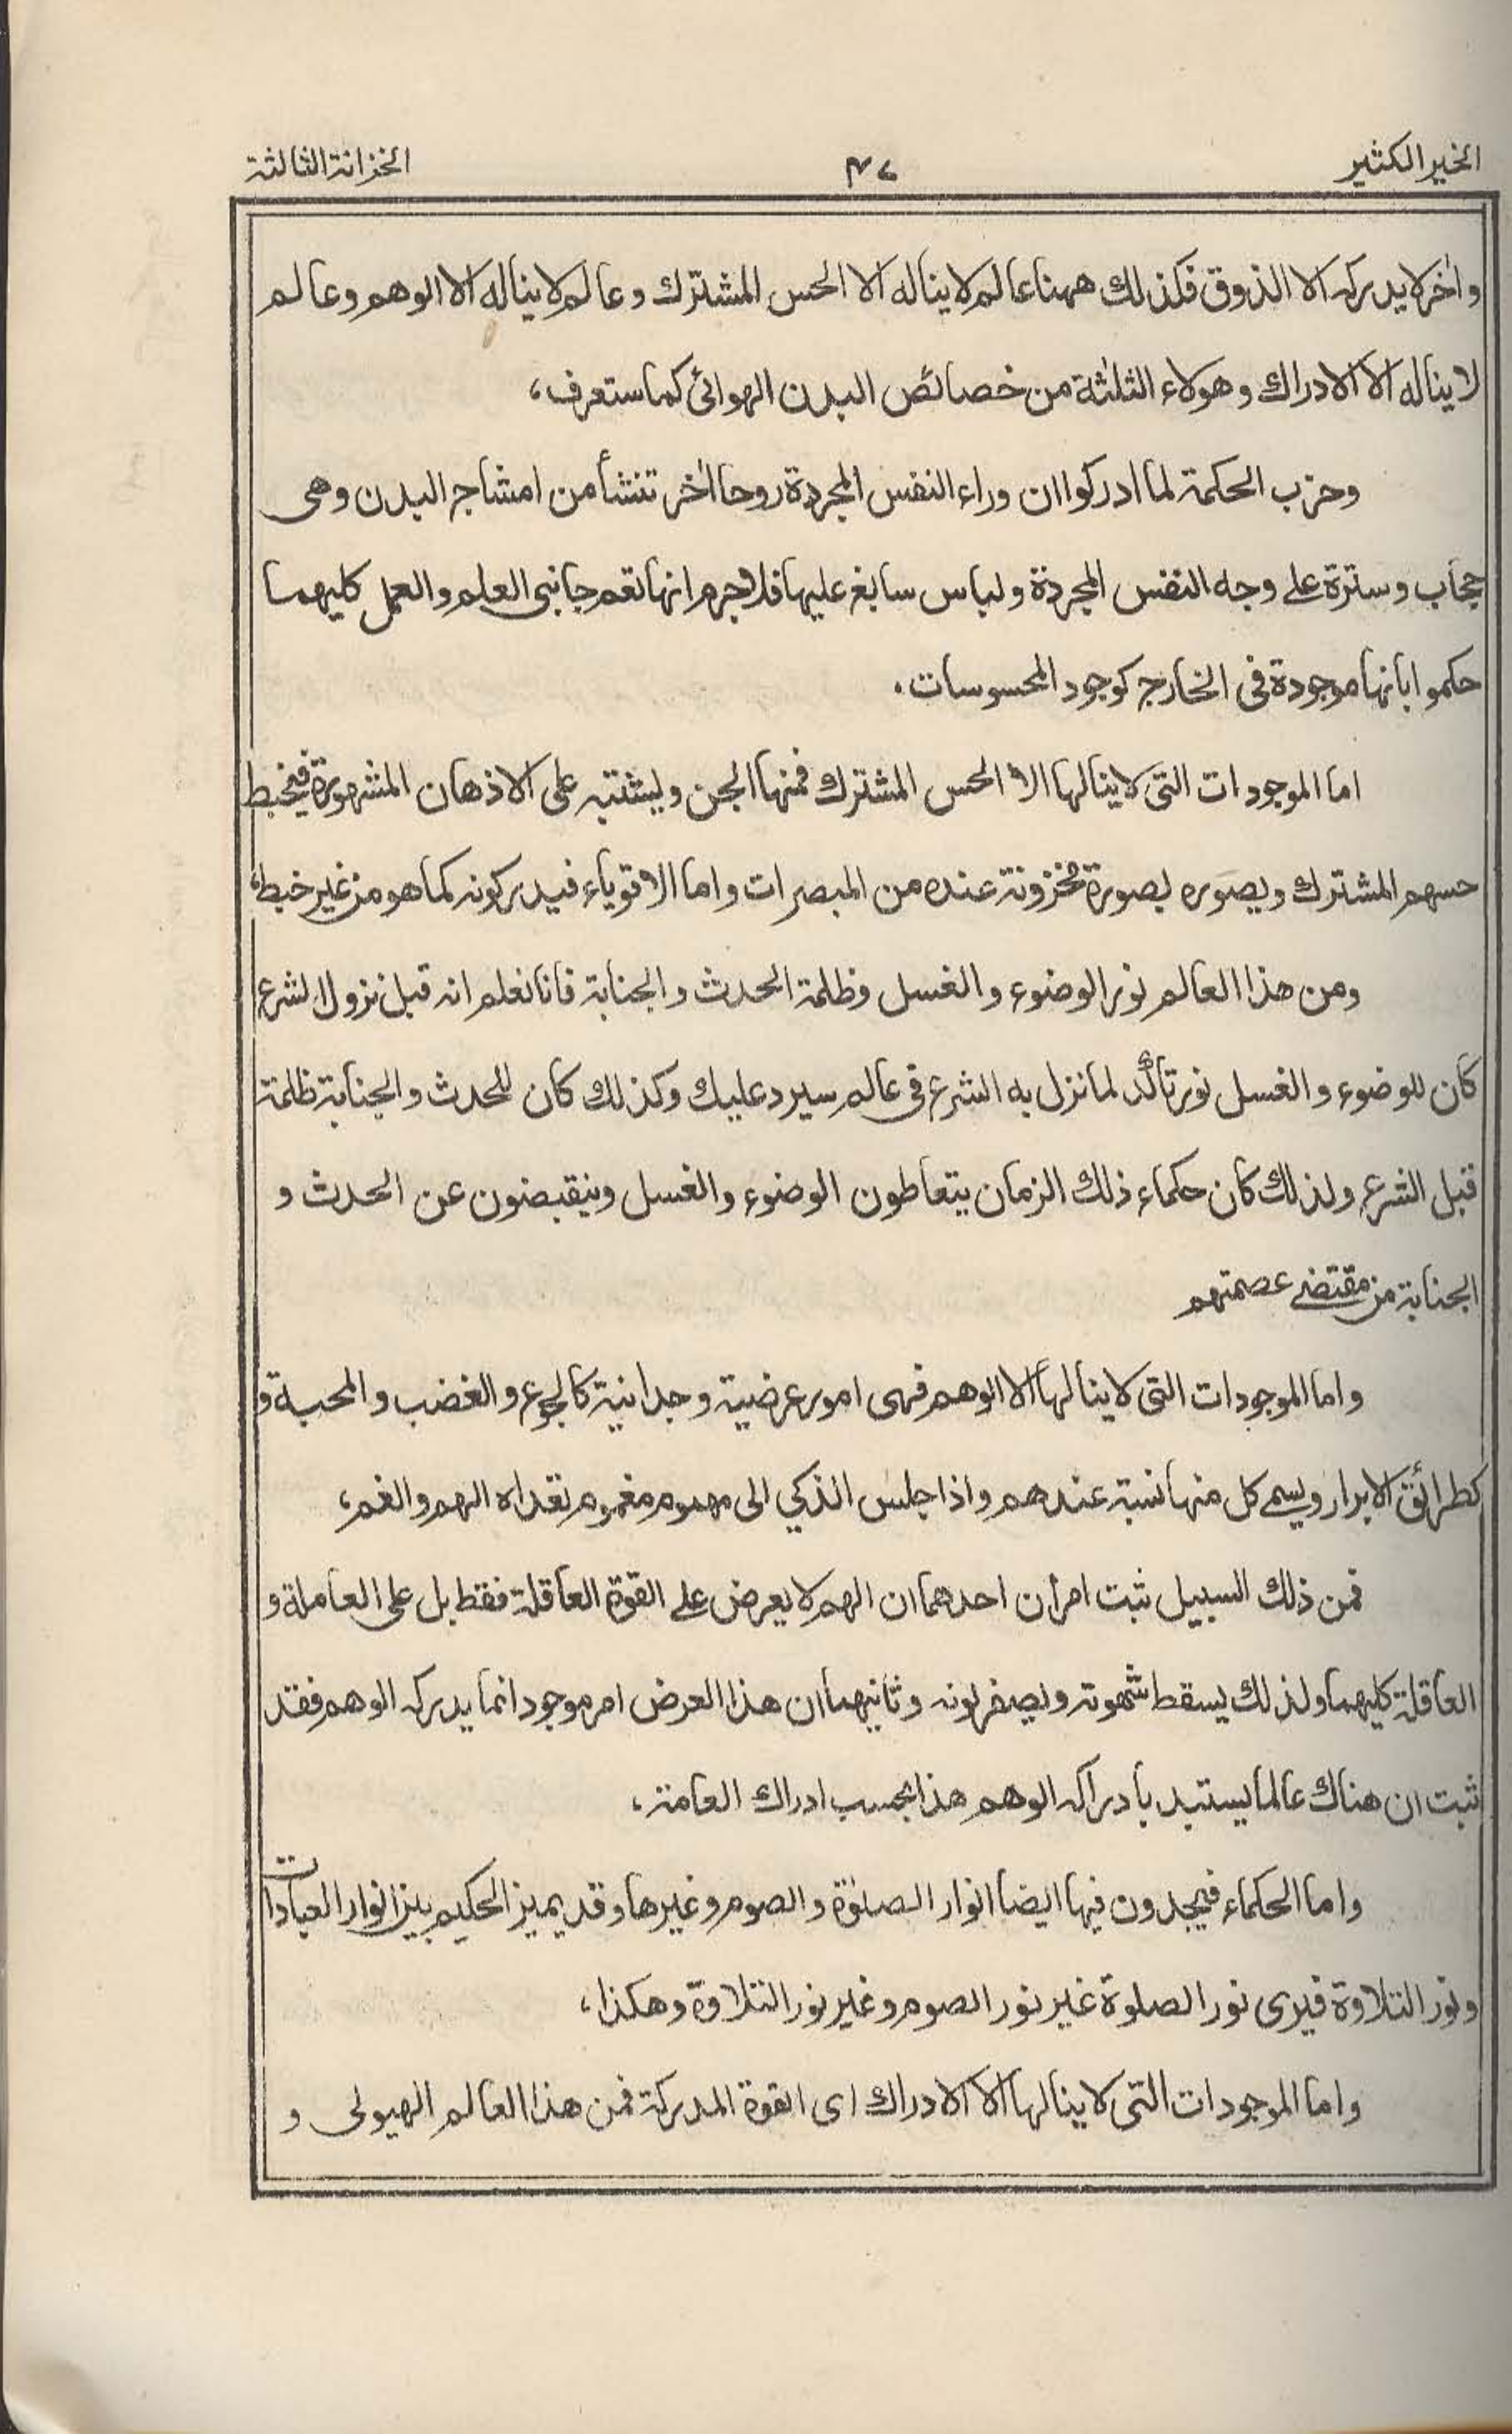 الخير الكثير
٤٧
الخزانة الثالثة
واٰخر لا يدركه الا الذوق فكذلك ههنا عالم لا يناله الا الحس المشترك وعالم لا يناله الا الوهم وعالم
لا يناله الا الادراك وهولاء الثلٰثة من خصائص البدن الهوائى كما ستعرف،
وحزب الحكمة لما ادركوا ان وراء النفس المجردة روحا اٰخر تنشأ من امشاج البدن وهى
حجاب وسترة على وجه النفس المجردة ولباس سابغ عليها فلا جرم انها تعم جانبى العلم والعمل كليهما
حكموا بانها موجودة فى الخارج كوجود المحسوسات.
اما الموجودات التى لا ينالها الا الحس المشترك فمنها الجن ويشتبه على الاذهان المشهورة فيخبط
حسهم المشترك ويصوره بصورة مخزونة عنده من المبصرات واما الاقوياء فيدركونه كما هو من غير خبط،
ومن هذا العالم نور الوضوء والغسل وظلمة الحدث والجنابة فانا نعلم انه قبل نزول الشرع
كان للوضوء والغسل نور تاكّد لما نزل به الشرع فى عالم سيرد عليك وكذلك كان للحدث والجنابة ظلمة
قبل الشرع ولذلك كان حكماء ذلك الزمان يتعاطون الوضوء والغسل وينقبضون عن الحدث و
الجنابة من مقتضى عصمتهم
واما الموجودات التى لا ينالها الا الوهم فهى امور عرضية وجدانية كالجوع والغضب والمحبة و
كطرائق الابرار ويسمى كل منها نسبة عندهم واذا جلس الذكي الى مهموم مغموم تعداه الهم والغم،
فمن ذلك السبيل ثبت امران احدهما ان الهم لا يعرض على القوة العاقلة فقط بل على العاملة و
العاقلة كليهما ولذلك يسقط شهوته ويصفر لونه وثانيهما ان هذا العرض امر موجود انما يدركه الوهم فقد
ثبت ان هناك عالما يستبد بادراكه الوهم هذا بحسب ادراك العامة،
واما الحكماء فيجدون فيها ايضا انوار الصلوٰة والصوم وغيرها وقد يميز الحكيم بين انوار العبادات
ونور التلاوة فيرى نور الصلوة غير نور الصوم وغير نور التلاوة وهكذا،
واما الموجودات التى لا ينالها الا الادراك اى القوة المدركة فمن هذا العالم الهيولى و